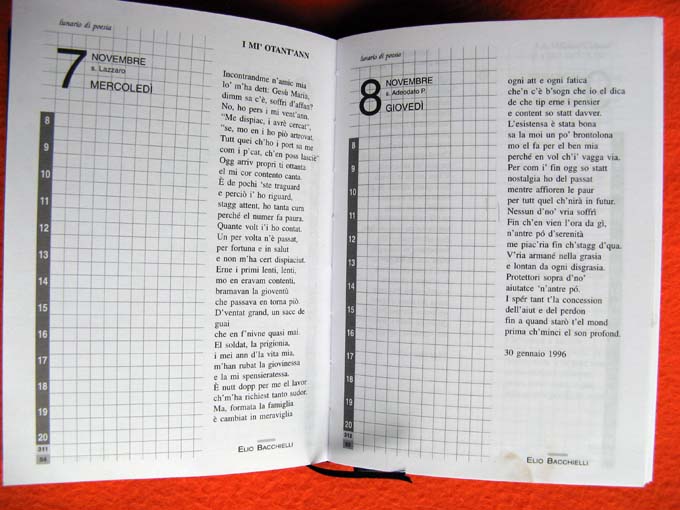 lunario di poesia
7
NOVEMBRE
s. Lazzaro
MERCOLEDÌ
8
9
10
11
12
13
14
15
16
17
18
19
20
311
54
I MI' OTANT'ANN
Incontrandme n'amic mia
lo' m'ha dett: Gesù Maria,
dimm sa c'è, soffri d'affan?
No, ho pers i mi vent'ann,
"Me dispiac, i avrè cercat",
"se, mo en i ho piò artrovat.
Tutt quei ch'ho i port sa me
com i p'cat, ch'en poss lasciè"
Ogg arriv propri ti ottanta
el mi cor contento canta.
È de pochi 'ste traguard
e perciò i' ho riguard,
stagg attent, ho tanta cura
perché el numer fa paura.
Quante volt i'i ho contat.
Un per volta n'è passat,
per fortuna e in salut
e non m'ha cert dispiaciut.
Erne i primi lenti, lenti,
mo en eravam contenti,
bramavan la gioventù
che passava en torna piò.
D'ventat grand, un sacc de
guai
che en f'nivne quasi mai.
El soldat, la prigionia,
i mei ann d'la vita mia,
m'han rubat la giovinessa
e la mi spensieratessa.
È nutt dopp per me el lavor
ch'm'ha richiest tanto sudor.
Ma, formata la famiglia
è cambiat in meraviglia
ELIO BACCHIELLI
lunario di poesia
8
NOVEMBRE
s. Adeodato P.
GIOVEDÌ
8
9
10
11
12
13
14
15
16
17
18
19
20
312
ogni att e ogni fatica
che'n c'è b'sogn che io el dica
de che tip erne i pensier
e content so statt davver.
L'esistensa è stata bona
sa la moi un po' brontolona
mo el fa per el ben mia
perché en vol ch'i' vagga via.
Per com i' fin ogg so statt
nostalgia ho del passat
mentre affioren le paur
per tutt quel ch'nirà in futur.
Nessun d'no' vria soffrì
Fin ch'en vien l'ora da gì,
n'antre pó d'serenità
me piac'ria fin ch'stagg d'qua.
V'ria armanè nella grasia
e lontan da ogni disgrasia.
Protettori sopra d'no'
aiutatce 'n'antre pó.
I spér tant t'la concession
dell'aiut e del perdon
fin a quand starò t'el mond
prima ch'minci el son profond.
30 gennaio 1996
ELIO BACCHIELLI